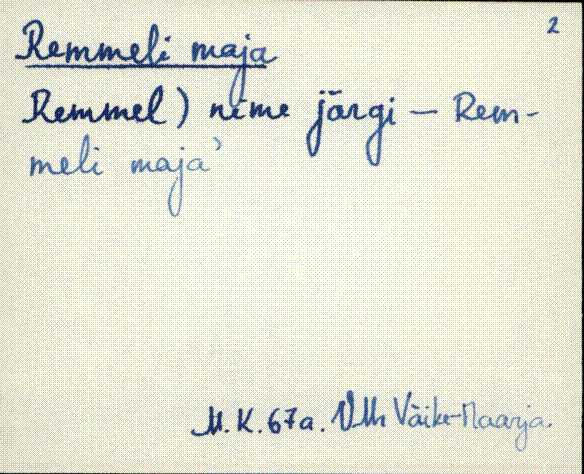 2
Remmeli maja
Remmel) nime järgi — Rem-
meli maja'
M. K. 67a. VMr Väike-Maarja.